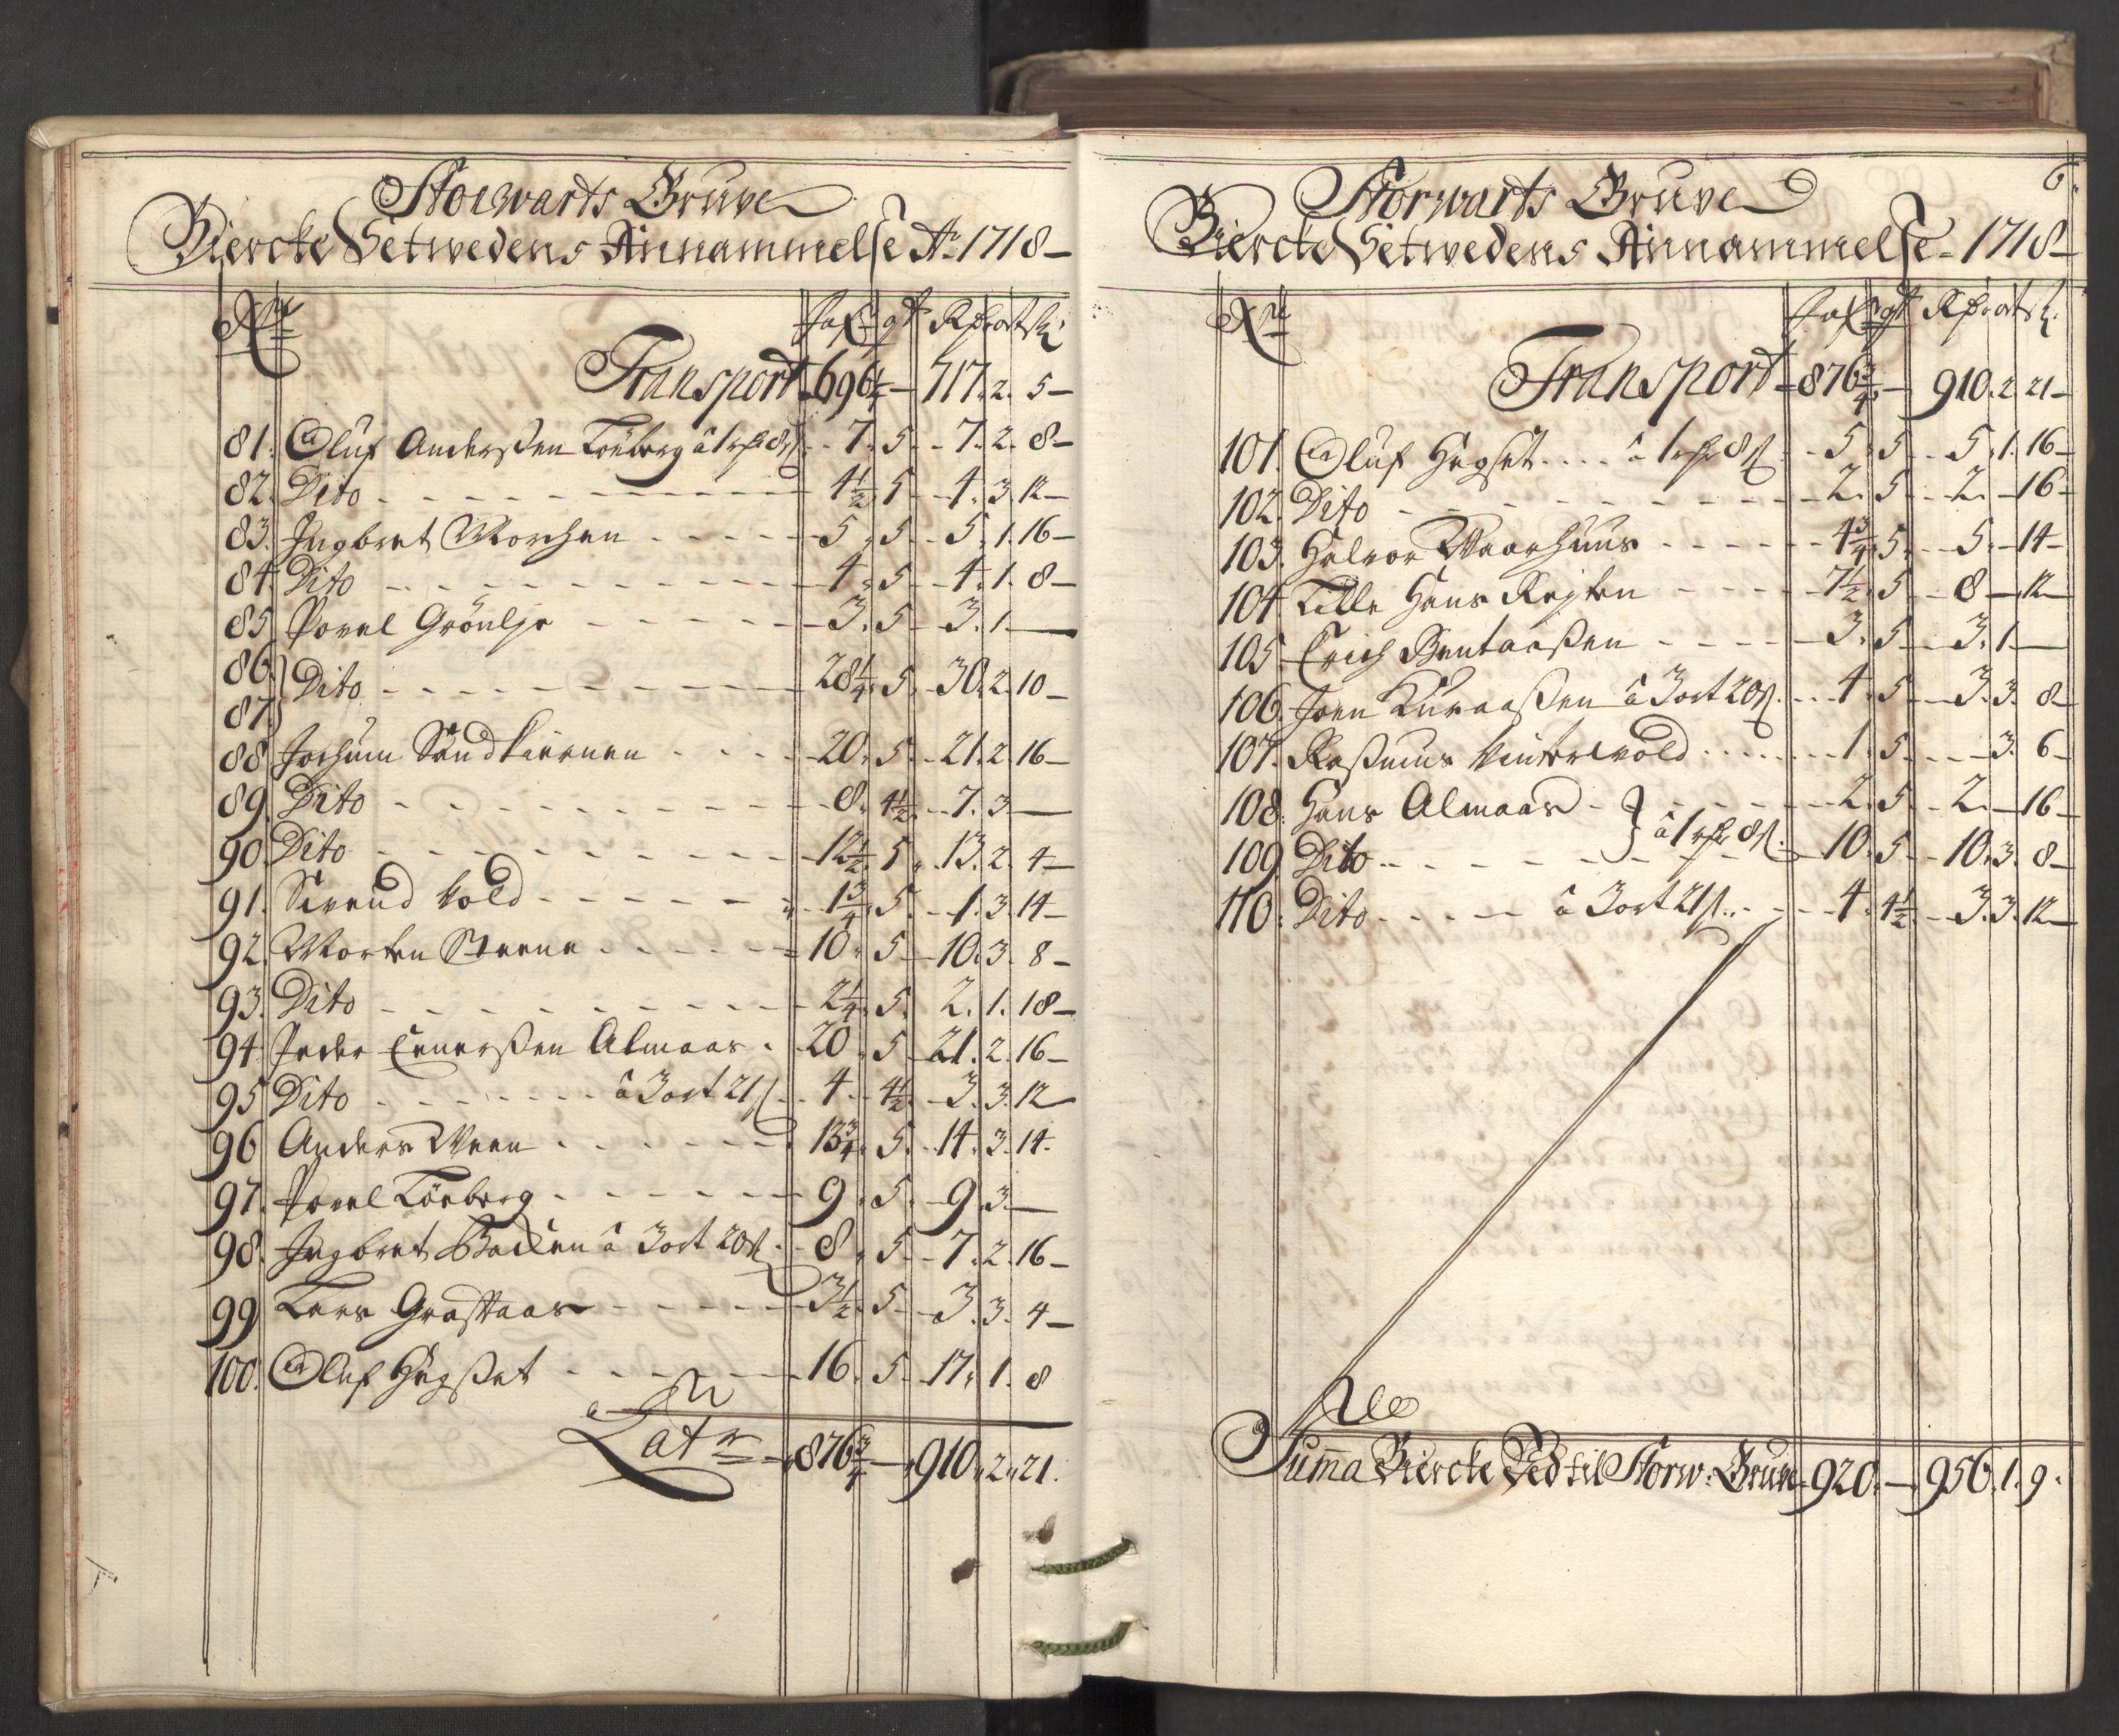 Storwarts Gruve
Biercke Setvedens Annammelse Ao. 1718
No. Fafn qt Rdr ort sk
Transport 696 1/4 — 717. 2. 5
81. Oluf Anderssen Tönberg â 1 rdr 8 s. 7. 5. 7. 2. 8
82. Dito 4 1/2. 5. 4. 3. 12
83. Ingbret Morchen 5. 5. 5. 1. 16
84. Dito 4. 5. 4. 1. 8
85. Povel Grönlje 3. 5. 3. 1. —
86. 87. Dito 28 1/4. 5. 30. 2. 10
88. Jochum 20. 5. 21. 2. 16
89. Dito 8. 4 1/2. 7. 3. —
90. Dito 12 1/2. 5. 13. 2. 4
91. Sivend Vold 1 3/4. 5. 1. 3. 14
92. Morten Steene 10. 5. 10. 3. 8
93. Dito 2 1/4. 5. 2. 1. 18
94. Peder Enerssen Almaas. 20. 5. 21. 2. 16
95. Dito â 3 ort 21 s. 4. 4 1/2. 3. 3. 12
96. Anders Ween 13 3/4. 5. 14. 3. 14.
97. Povel Tönberg 9. 5. 9. 3. —
98. Ingbret Backen â 3 ort 20 s. 8. 5. 7. 2. 16
99. Lars Graffaas 3 1/2. 5. 3. 3. 4
100. Oluf Hegset 16. 5. 17. 1. 8
Lat 876 3/4 — 910. 2. 21.
6.
Storwarts Gruve
Biercke Setvedens Annammelse 1718
No. Fafn qt Rdr ort sk.
Transport 876 3/4 — 910. 2. 21
101. Oluf Hegset â 1 rdr 8 s. 5. 5. 5. 1. 16
102. Dito 2. 5. 2. — 16
103. Halvor Waarhuus 4 3/4. 5. 5. — 14
104. Lille Hans Rejten 7 1/2. 5. 8 — 12
105. Erich Bentaassen 3. 5. 3. 1. —
106. Joen â 3 ort 20 s. 4. 5. 3. 3. 8
107. Rasmus Vintervold 1. 5. — 3. 6
108. Hans Almaas 2. 5. 2. — 16
â 1 rdr 8 s.
109. Dito 10. 5. 10. 3. 8
110. Dito â 3 ort 21 s. 4. 4 1/2. 3. 3. 12
Summa Biercke Ved til Storw. Gruve 920. — 956. 1. 9.